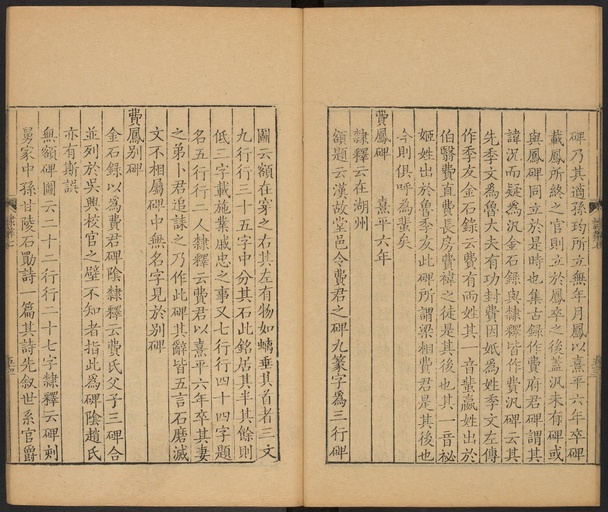 碑乃其適孫玓所立無年月鳳以熹平六年卒碑
載鳳所終之官則立於鳳卒之後蓋汎未有碑或
與鳳碑同立於是時也集古錄作費府君碑謂其
諱汎而疑為沉金石錄與隸釋皆作費汎碑云其
先季文為魯大夫有功封費因氏為姓季文左傳
作季友金石錄云費有兩姓其一音蜚嬴姓出於
伯翳費直費長房費禕之徒是其後也其一音祕
姬姓出於魯季友此碑所謂梁相費君是其後也
今則俱呼為蜚矣
費鳳碑 熹平六年
隸釋云在湖州
額題云漢故堂邑令費君之碑九篆字為三行碑
圖云額在穿之右其左有物如螭垂其首者三文
九行行三十五字中分其石此銘居其半其餘則
低三字載施業戚忠之事又七行行四十四字題
名五行行二人隸釋云費君以熹平六年卒其妻
之弟卜君追誄之乃作此碑其辭皆五言石磨滅
文不相屬碑中無名字見於別碑
費鳳別碑
金石錄以為費君碑陰隸釋云費氏父子三碑合
並列於吳興校官之壁不知者指此為碑陰趙氏
亦有斯誤
無額碑圖云二十二行行二十七字隸釋云碑刻
舅家中孫甘陵石勛詩一篇其詩先敘世系官爵